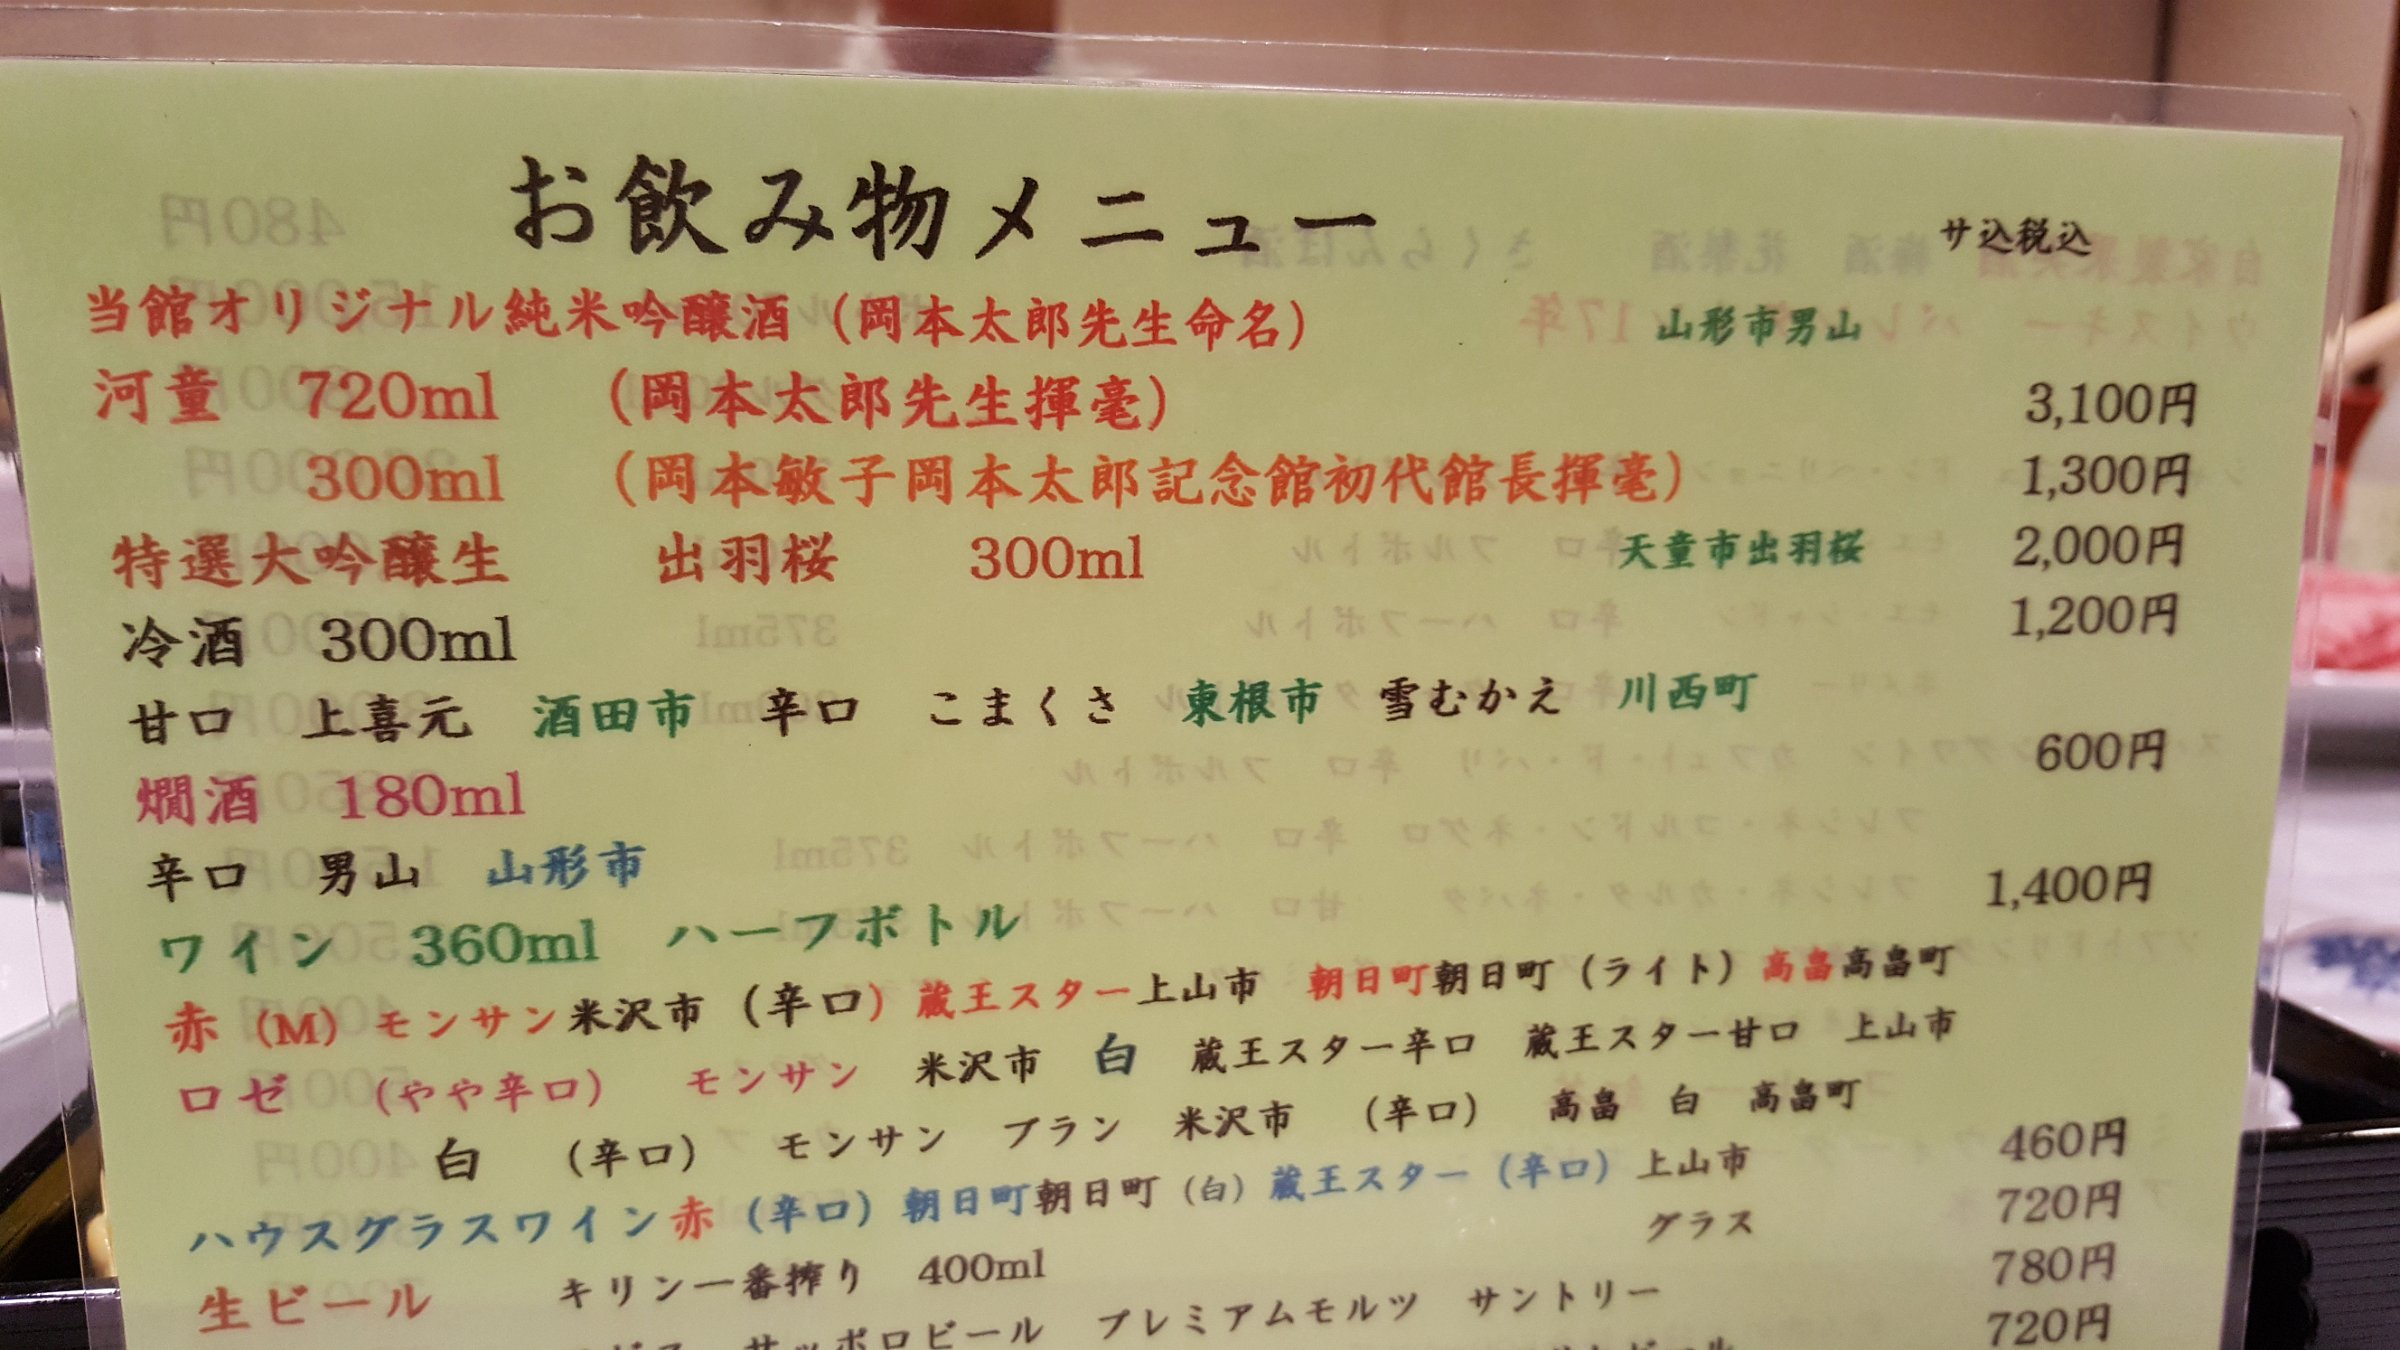 お飲み物メニュー サ込税込
当館オリジナル純米吟醸酒(岡本太郎先生命名) 山形市男山
河童 720ml (岡本太郎先生揮毫) 3,100円
300ml (岡本敏子岡本太郎記念館初代館長揮毫) 1,300円
特選大吟醸生 出羽桜 300ml 天童市出羽桜 2,000円
冷酒 300ml 1,200円
甘口 上喜元 酒田市 辛口 こまくさ 東根市 雪むかえ 川西町
燗酒 180ml 600円
辛口 男山 山形市
ワイン 360ml ハーフボトル 1,400円
赤(M)モンサン米沢市(辛口)蔵王スター上山市 朝日町朝日町(ライト)高畠高畠町
ロゼ (やや辛口) モンサン 米沢市 白 蔵王スター辛口 蔵王スター甘口 上山市
白 (辛口) モンサン ブラン 米沢市 (辛口) 高畠 白 高畠町
ハウスグラスワイン赤(辛口)朝日町朝日町(白)蔵王スター(辛口)上山市 460円
グラス 720円
生ビール キリン一番搾り 400ml 780円
サッポロビール プレミアムモルツ サントリー 720円